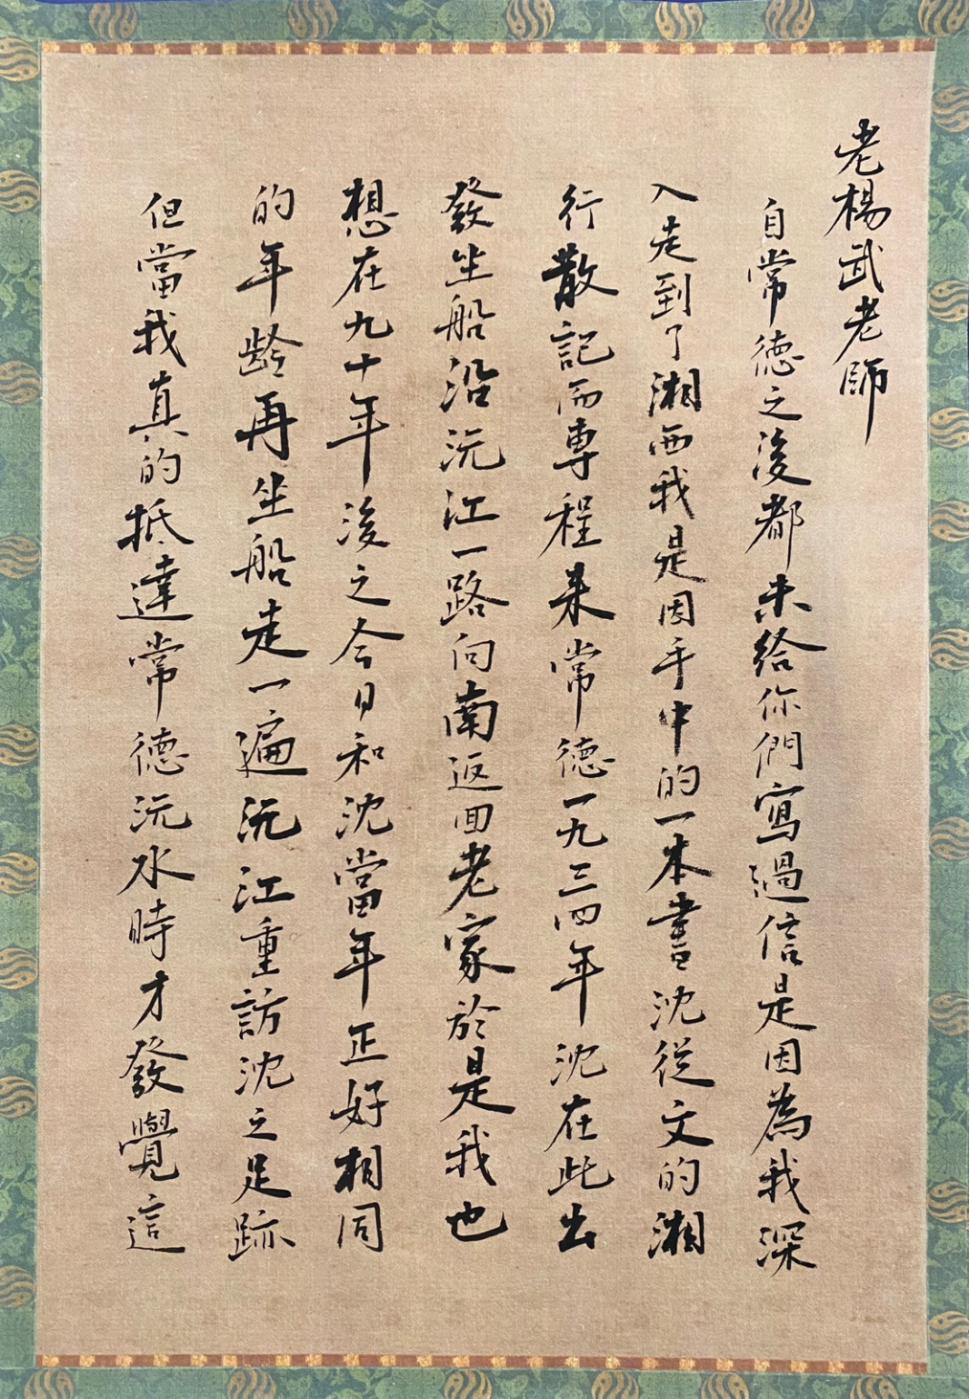 老楊武老師
自常德之後都未給你們寫過信是因為我深
入走到了湘西我是因手中的一本書沈從文的湘
行散記而專程来常德一九三四年沈在此出
發坐船沿沅江一路向南返回老家於是我也
想在九十年後之今日和沈當年正好相同
的年齡再坐船走一遍沅江重訪沈之足跡
但當我真的抵達常德沅水時才發覺這